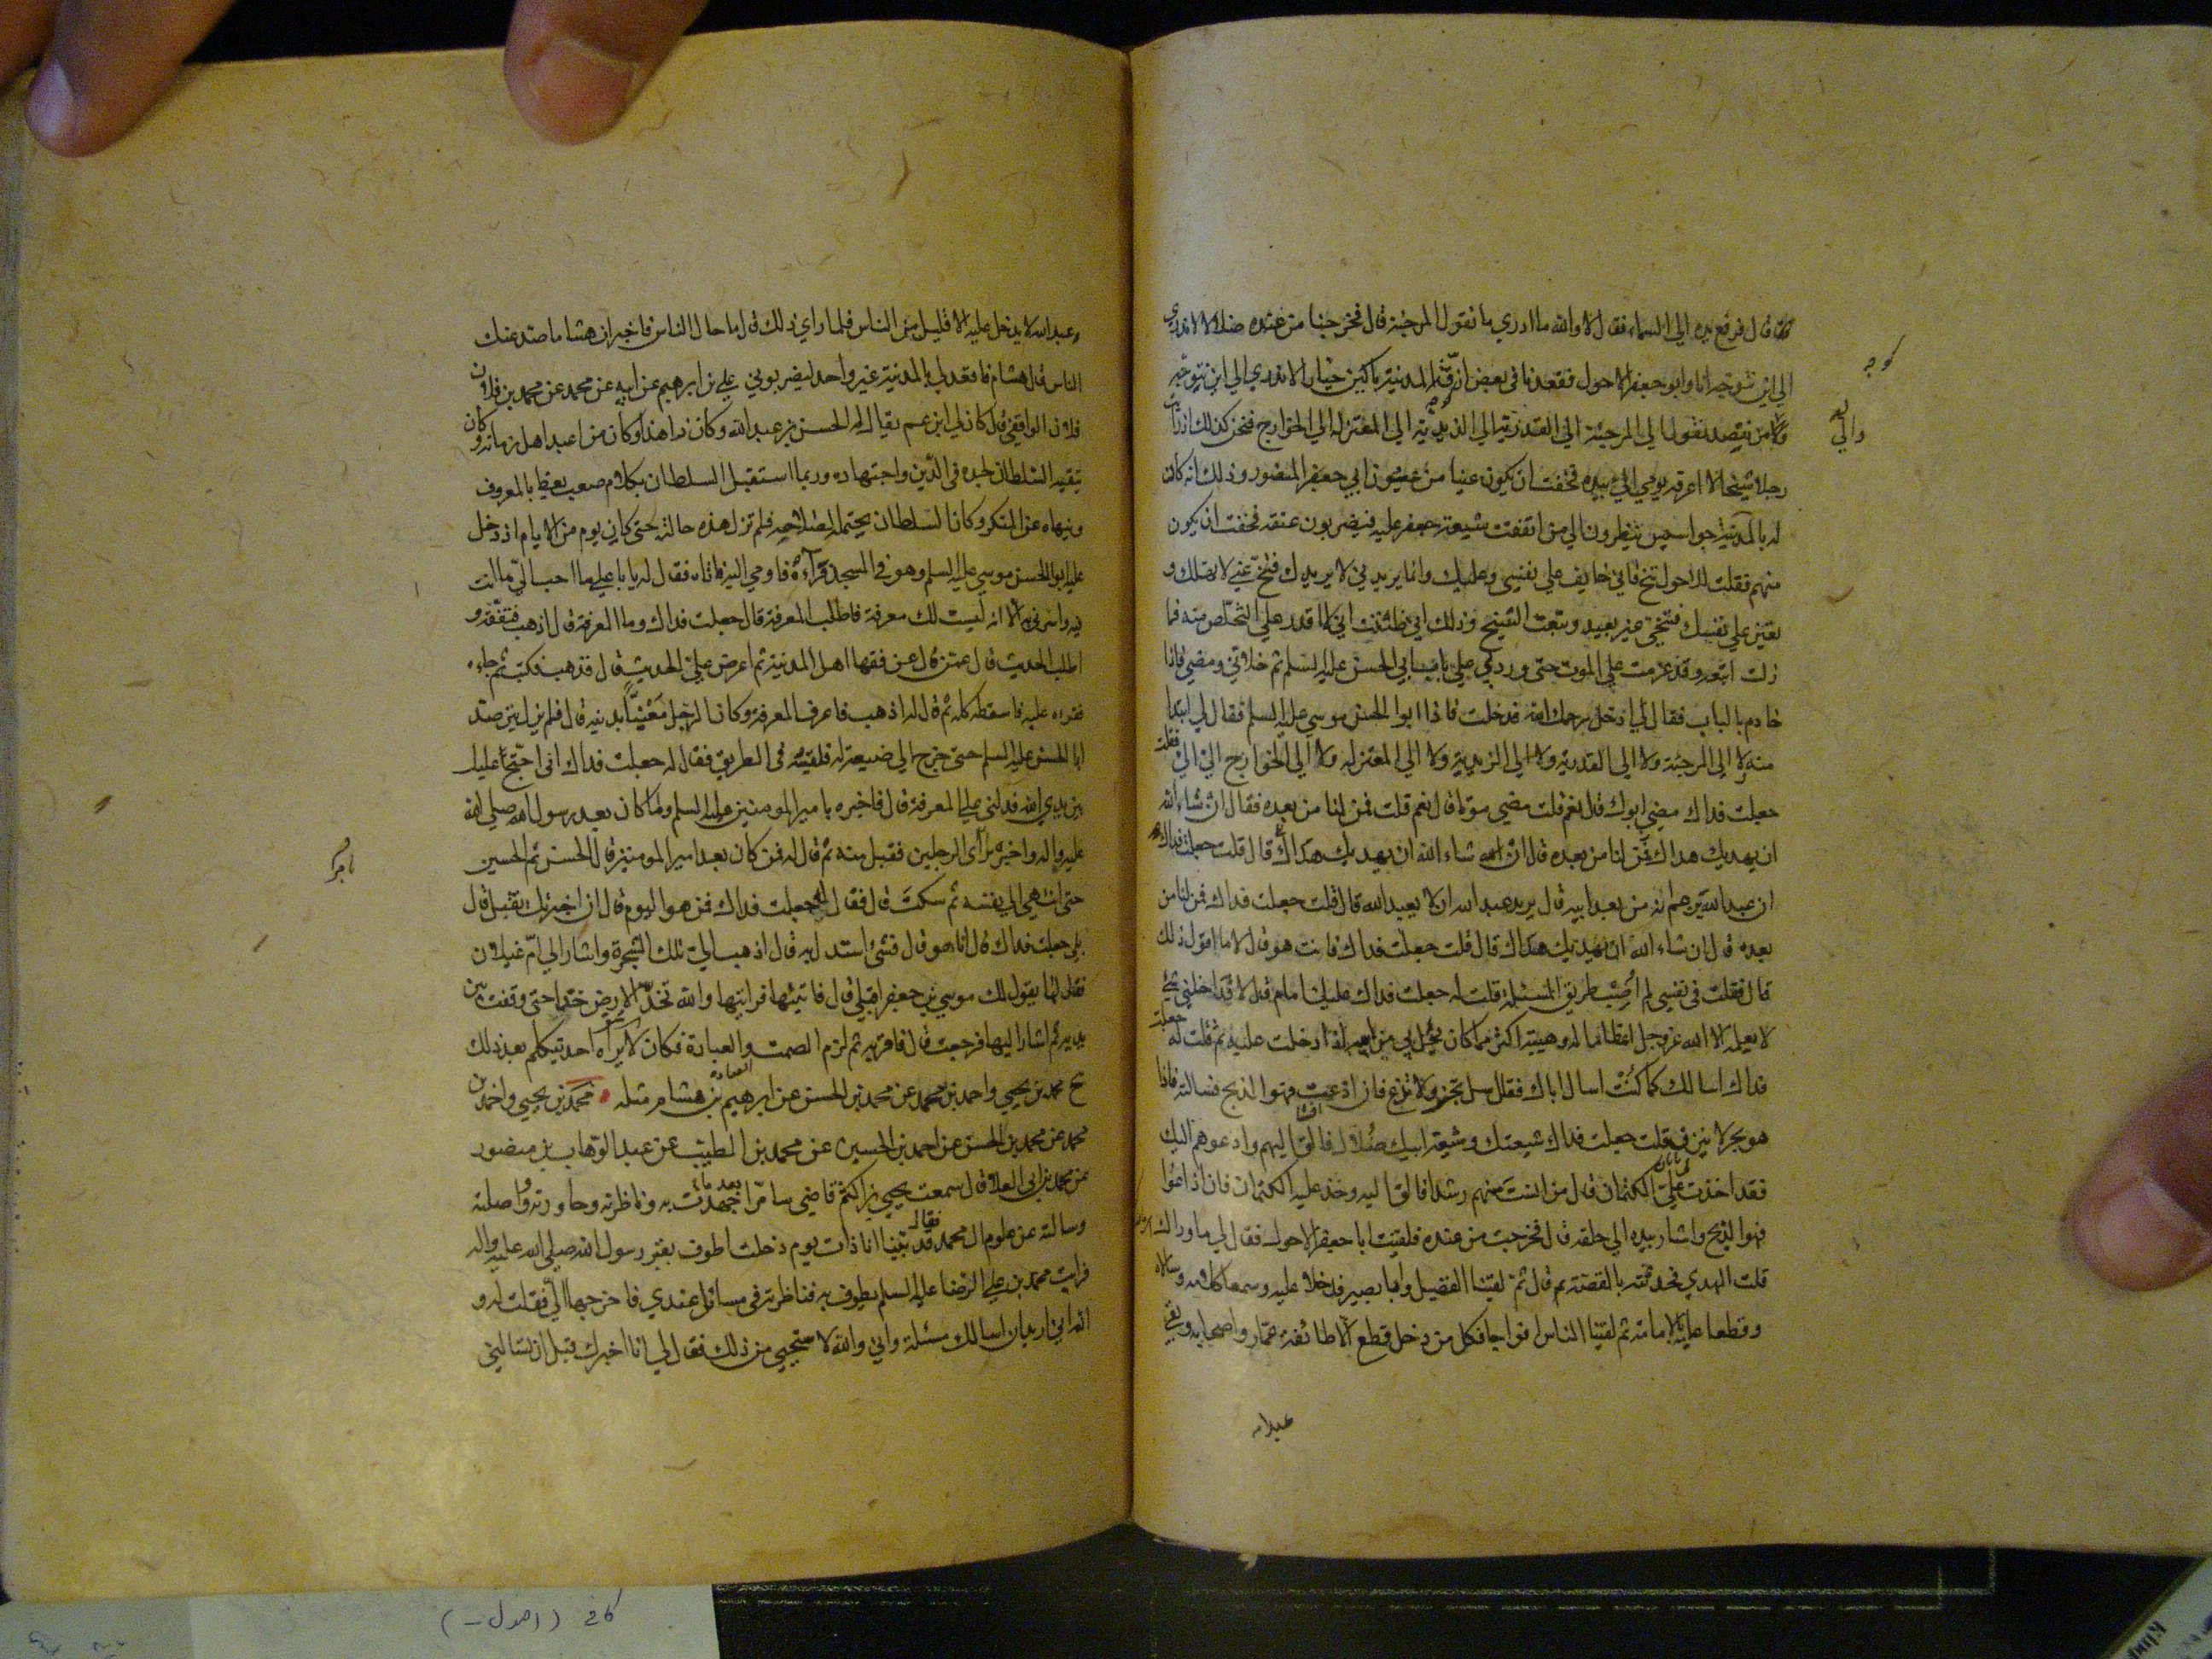 قال فرفع يده الي السماء فقال لا والله ما ادري ما تقول المرجئة قال فخرجنا من عنده ضلالا لا ندري
الي اين نتوجه انا وابو جعفر الاحول فقعدنا في بعض ازقة المدينة باكين حيارا لا ندري الي اين نتوجه
ولا من نقصد نقول الي المرجئة الي القدرية الي الزيدية الي المعتزلة الي الخوارج فنحن كذلك اذ رايت
والي
رجلا شيخا لا اعرفه يومي الي بيده فخفت ان يكون عينا من عيون ابي جعفر المنصور وذلك انه كان
له بالمدينة جواسيس ينظرون الي من اتفقت شيعة جعفر عليه فيضربون عنقه فخفت ان يكون
منهم فقلت للاحول تنح فاني خايف علي نفسي وعليك وانما يريدني لا يريدك فتنح عني لا تهلك و
تعين علي نفسك فتنحي غير بعيد وتبعت الشيخ وذلك اني ظننت اني لا اقدر علي التخلص منه فما
زلت اتبعه وقد عزمت علي الموت حتى ورد بي علي باب ابي الحسن عليه السلم ثم خلاني ومضي فاذا
خادم بالباب فقال لي ادخل رحمك الله فدخلت فاذا ابوا الحسن موسي عليه السلم فقال لي ابتدا
منه لا الي المرجئة ولا الي القدرية ولا الي الزيدية ولا الي المعتزلة ولا الي الخوارج الي الي فقلت
جعلت فداك مضي ابوك قال نعم قلت مضي موتا قال نعم قلت فمن لنا من بعده فقال ان شاء الله
ان يهديك هداك قلت جعلت فداك
ان عبد الله يزعم انه من بعد ابيه قال يريد عبد الله ان لا يعبد الله قال قلت جعلت فداك فمن لنا من
بعده قال ان شاء الله ان يهديك هداك قال قلت جعلت فداك فانت هو قال لا ما اقول ذلك
قال فقلت في نفسي لم اصب طريق المسئلة قلت له جعلت فداك عليك امام قال لا فداخلني شئ
لا يعلم الا الله عز وجل اعظاما له وهيبة اكثر مما كان يحل بي من ابيه اذا دخلت عليه ثم قلت له جعلت
فداك اسالك كما كنت اسال اباك فقال سل تخبر ولا تذع فان اذعت فهوا الذبح فسالته فاذا
هو بحر لا ينزف قلت جعلت فداك شيعتك وشيعة ابيك ضلال فالق اليهم وادعوهم اليك
فقد اخذت علي الكتمان قال من انست منهم رشدا فالق اليه وخذ عليه الكتمان فان اذاعوا
فهوا الذبح واشار بيده الي حلقه قال فخرجت من عنده فلقيت ابا جعفر الاحول فقال لي ما وراك
قلت الهدي فحدثته بالقصة ثم قال ثم لقينا الفضيل وابا بصير فدخلا عليه وسمعا كلامه وسالاه
وقطعا عليه بالامامة ثم لقينا الناس افواجا فكل من دخل قطع الا طائفة عمار واصحابه وبقي
عبد الله
عبد الله لا يدخل عليه الا قليل من الناس فلما راي ذلك قال ما حال الناس فاخبر ان هشاما صد عنك
الناس قال هشام فاقعد لي بالمدينة غير واحد ليضربوني علي بن ابرهيم عن ابيه عن محمد عن محمد بن فلان
فلان الواقفي قال كان لي ابن عم يقال له الحسن بن عبد الله وكان زاهدا وكان من اعبد اهل زمانه وكان
يتقيه السلطان لجده في الدين واجتهاده وربما استقبل السلطان بكلام صعب يعظه بالمعروف
وينهاه عن المنكر وكان السلطان يحتمله لصلاحه فلم تزل هذه حالته حتى كان يوم من الايام اذ دخل
عليه ابو الحسن موسي عليه السلم وهو في المسجد فرآه فاومي اليه فاتاه فقال له يا با علي ما احب الي ما انت
فيه واسرني الا انه ليست لك معرفة فاطلب المعرفة قال جعلت فداك وما المعرفة قال اذهب فتفقه و
اطلب الحديث قال عمن قال عن فقهاء اهل المدينة ثم اعرض علي الحديث قال فذهب فكتب ثم جاءه
فقراه عليه فاسقطه كله ثم قال له اذهب فاعرف المعرفة وكان الرجل معنيا بدينه قال فلم يزل يترصد
ابا الحسن عليه السلم حتى خرج الي ضيعة له فلقيه في الطريق فقال له جعلت فداك اني احتج عليك
بين يدي الله فدلني علي المعرفة قال فاخبره بامير المومنين عليه السلم وما كان بعد رسول الله صلي الله
عليه واله واخبره بامر الرجلين فقبل منه ثم قال له فمن كان بعد امير المومنين قال الحسن ثم الحسين
حتى انتهي الي نفسه ثم سكت قال فقال له جعلت فداك فمن هو اليوم قال ان اخبرتك تقبل قال
بلي جعلت فداك قال انا هو قال فشئ استدل به قال اذهب الي تلك الشجرة واشار الي ام غيلان
فقل لها يقول لك موسي بن جعفر اقبلي قال فاتيتها فرايتها والله تخد الارض خدا حتى وقفت بين
يديه ثم اشار اليها فرجعت قال فاقر به ثم لزم الصمت والعبادة فكان لا يراه احد يتكلم بعد ذلك
محمد بن يحيي واحمد بن محمد عن محمد بن الحسن عن ابرهيم بن هشام مثله محمد بن يحيي واحمد بن
محمد عن محمد بن الحسن عن احمد بن الحسين عن محمد بن الطيب عن عبد الوهاب بن منصور
عن محمد بن ابي العلا قال سمعت يحيي بن اكثم قاضي سامرا بعد ما جهدت به وناظرته وحاورته وواصلته
وسالته عن علوم ال محمد فقال بينا انا ذات يوم دخلت اطوف بقبر رسول الله صلي الله عليه واله
فرايت محمد بن علي الرضا عليه السلم يطوف به فناظرته في مسائل عندي فاخرجها الي فقلت له و
الله اني اريد ان اسالك مسئلة واني والله لاستحيي من ذلك فقال لي انا اخبرك قبل ان تسالني
كافي (اصول -)